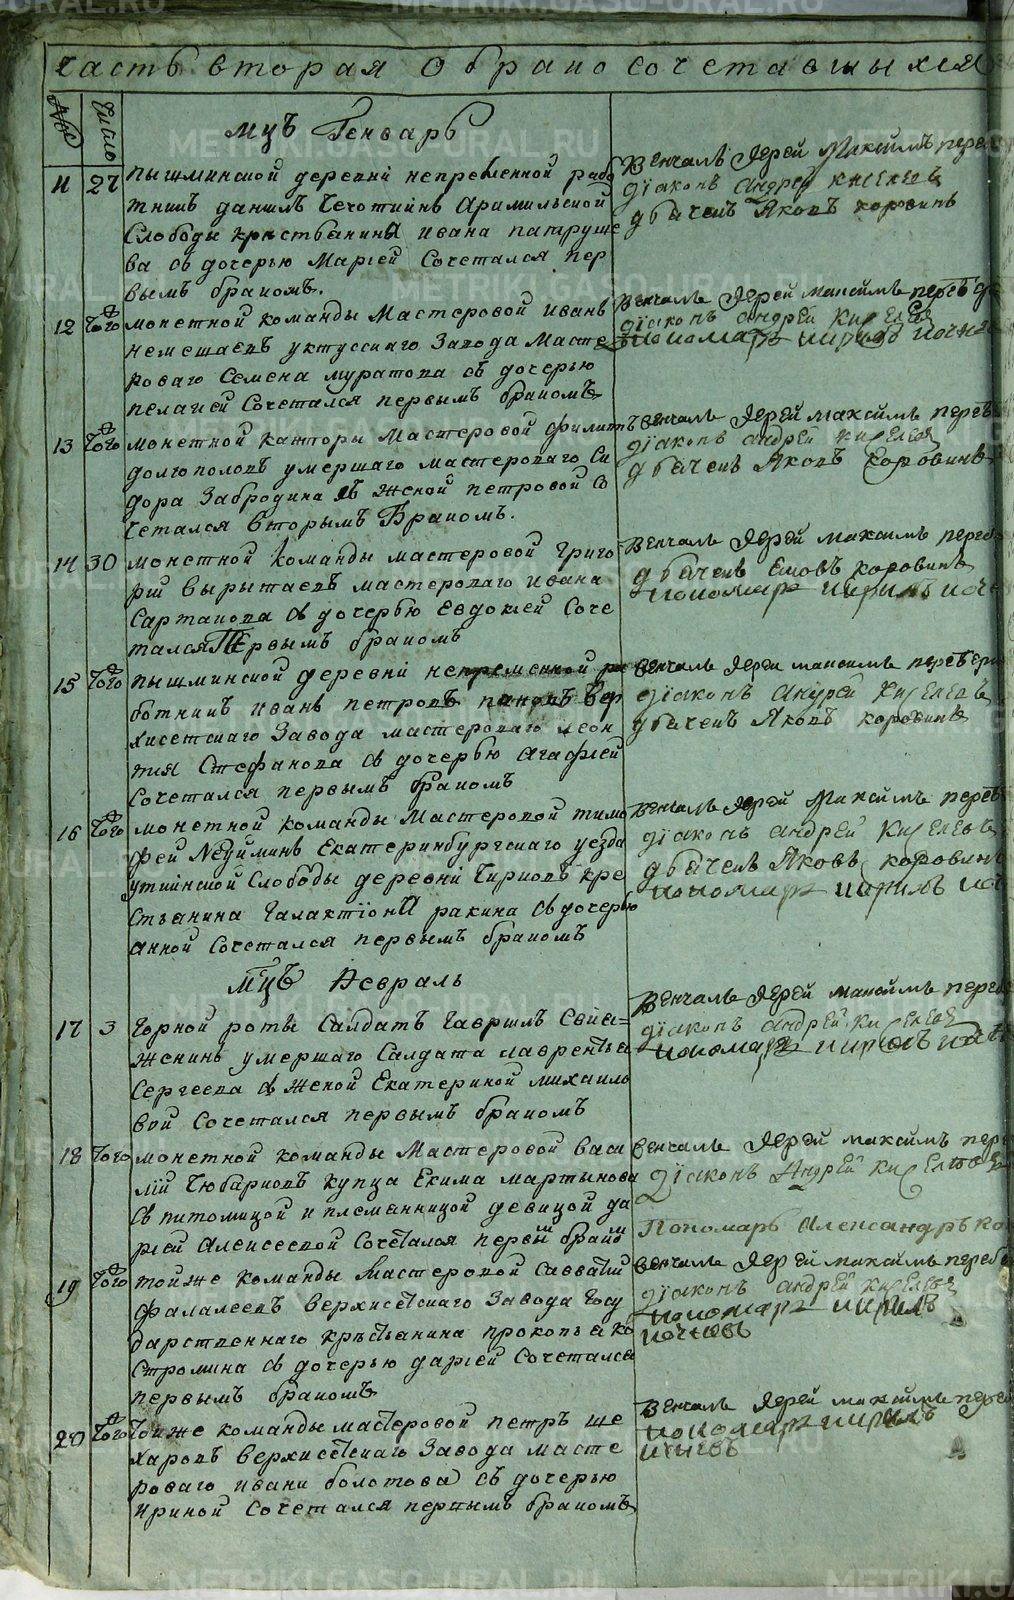 часть вторая о бракосочетавшыхся
№
число
мцъ Генварь
11 27 пышминской деревни непременной рабо
тникъ данилъ Чечоткинъ Арамильской
Слободы крестьянина ивана патруше
ва съ дочерью Марïей Сочетался пер
вымъ бракомъ.
Венчалъ Иерей Максимъ
дïаконъ Андрей Киселевъ
дьячекъ Яковъ коровинъ
12 того монетной команды Мастеровой иванъ
немешаевъ уктусскаго Завода Масте
роваго Семена муратова съ дочерью
пелагией Сочетался первымъ бракомъ
Венчалъ Иерей максимъ
дïаконъ андрей Киселевъ
пономарь кирилъ
13 того монетной канторы Мастеровой филипъ
долгополовъ умершаго мастероваго Си
дора Забродина съ Женой петровой Со
четался вторымъ Бракомъ.
Венчалъ Иерей максимъ
дïаконъ андрей Киселевъ
дьячекъ Яковъ Коровинъ
14 30 монетной команды мастеровой григо
рïй вырытаевъ мастероваго ивана
Сартакова съ дочерью Евдокией Соче
тался Первымъ бракомъ
Венчалъ Иерей максимъ
дьячекъ Ековъ коровинъ
пономарь кирилъ
15 того пышминской деревни непременной ра
ботникъ иванъ петровъ пановъ вер
хисетскаго Завода мастероваго леон
тия Стефанова съ дочерью агафией
Сочетался первымъ бракомъ
Венчалъ Иерей максимъ
дïаконъ Андрей Киселевъ
дьячекъ Яковъ коровинъ
16 того монетной команды Мастеровой тимо
фей Неуйминъ Екатеринбургскаго уезда
уткинской Слободы деревни Чирковъ кре
стьянина Галактïона ракина съ дочерью
анной Сочетался первымъ бракомъ
Венчалъ Иерей Максимъ
дïаконъ андрей Киселевъ
дьячекъ Яковъ коровинъ
пономарь кирилъ
мцъ Февраль
17 3 Горной роты Салдатъ гаврилъ Свия=
женинъ умершаго Салдата лаврентья
Сергеева съ Женой Екатериной михайло
вой Сочетался первымъ бракомъ
Венчалъ Иерей максимъ
дïаконъ андрей Киселевъ
пономарь кирилъ
18 того монетной команды Мастеровой васи
лïй Чюбариковъ купца Екима мартынова
Съ питомицой и племянницой девицой да
рïей Алексеевой Сочетался первымъ бракомъ
Венчалъ Иерей максимъ
дïаконъ Андрей Киселевъ
Пономарь Александръ
19 того тойже команды Мастеровой Савватий
фалалеевъ верхисетскаго Завода Госу
дарственнаго крестьянина прокопья ко
стромина съ дочерью дарïей Сочетался
первымъ бракомъ
Венчалъ Иерей максимъ
дïаконъ андрей Киселевъ
пономарь кирилъ
20 того тойже команды мастеровой петръ ше
харовъ верхисетскаго Завода масте
роваго ивана болотова съ дочерью
ириной Сочетался первымъ бракомъ
Венчалъ Иерей максимъ
пономарь кирилъ
METRIKI.GASO-URAL.RU